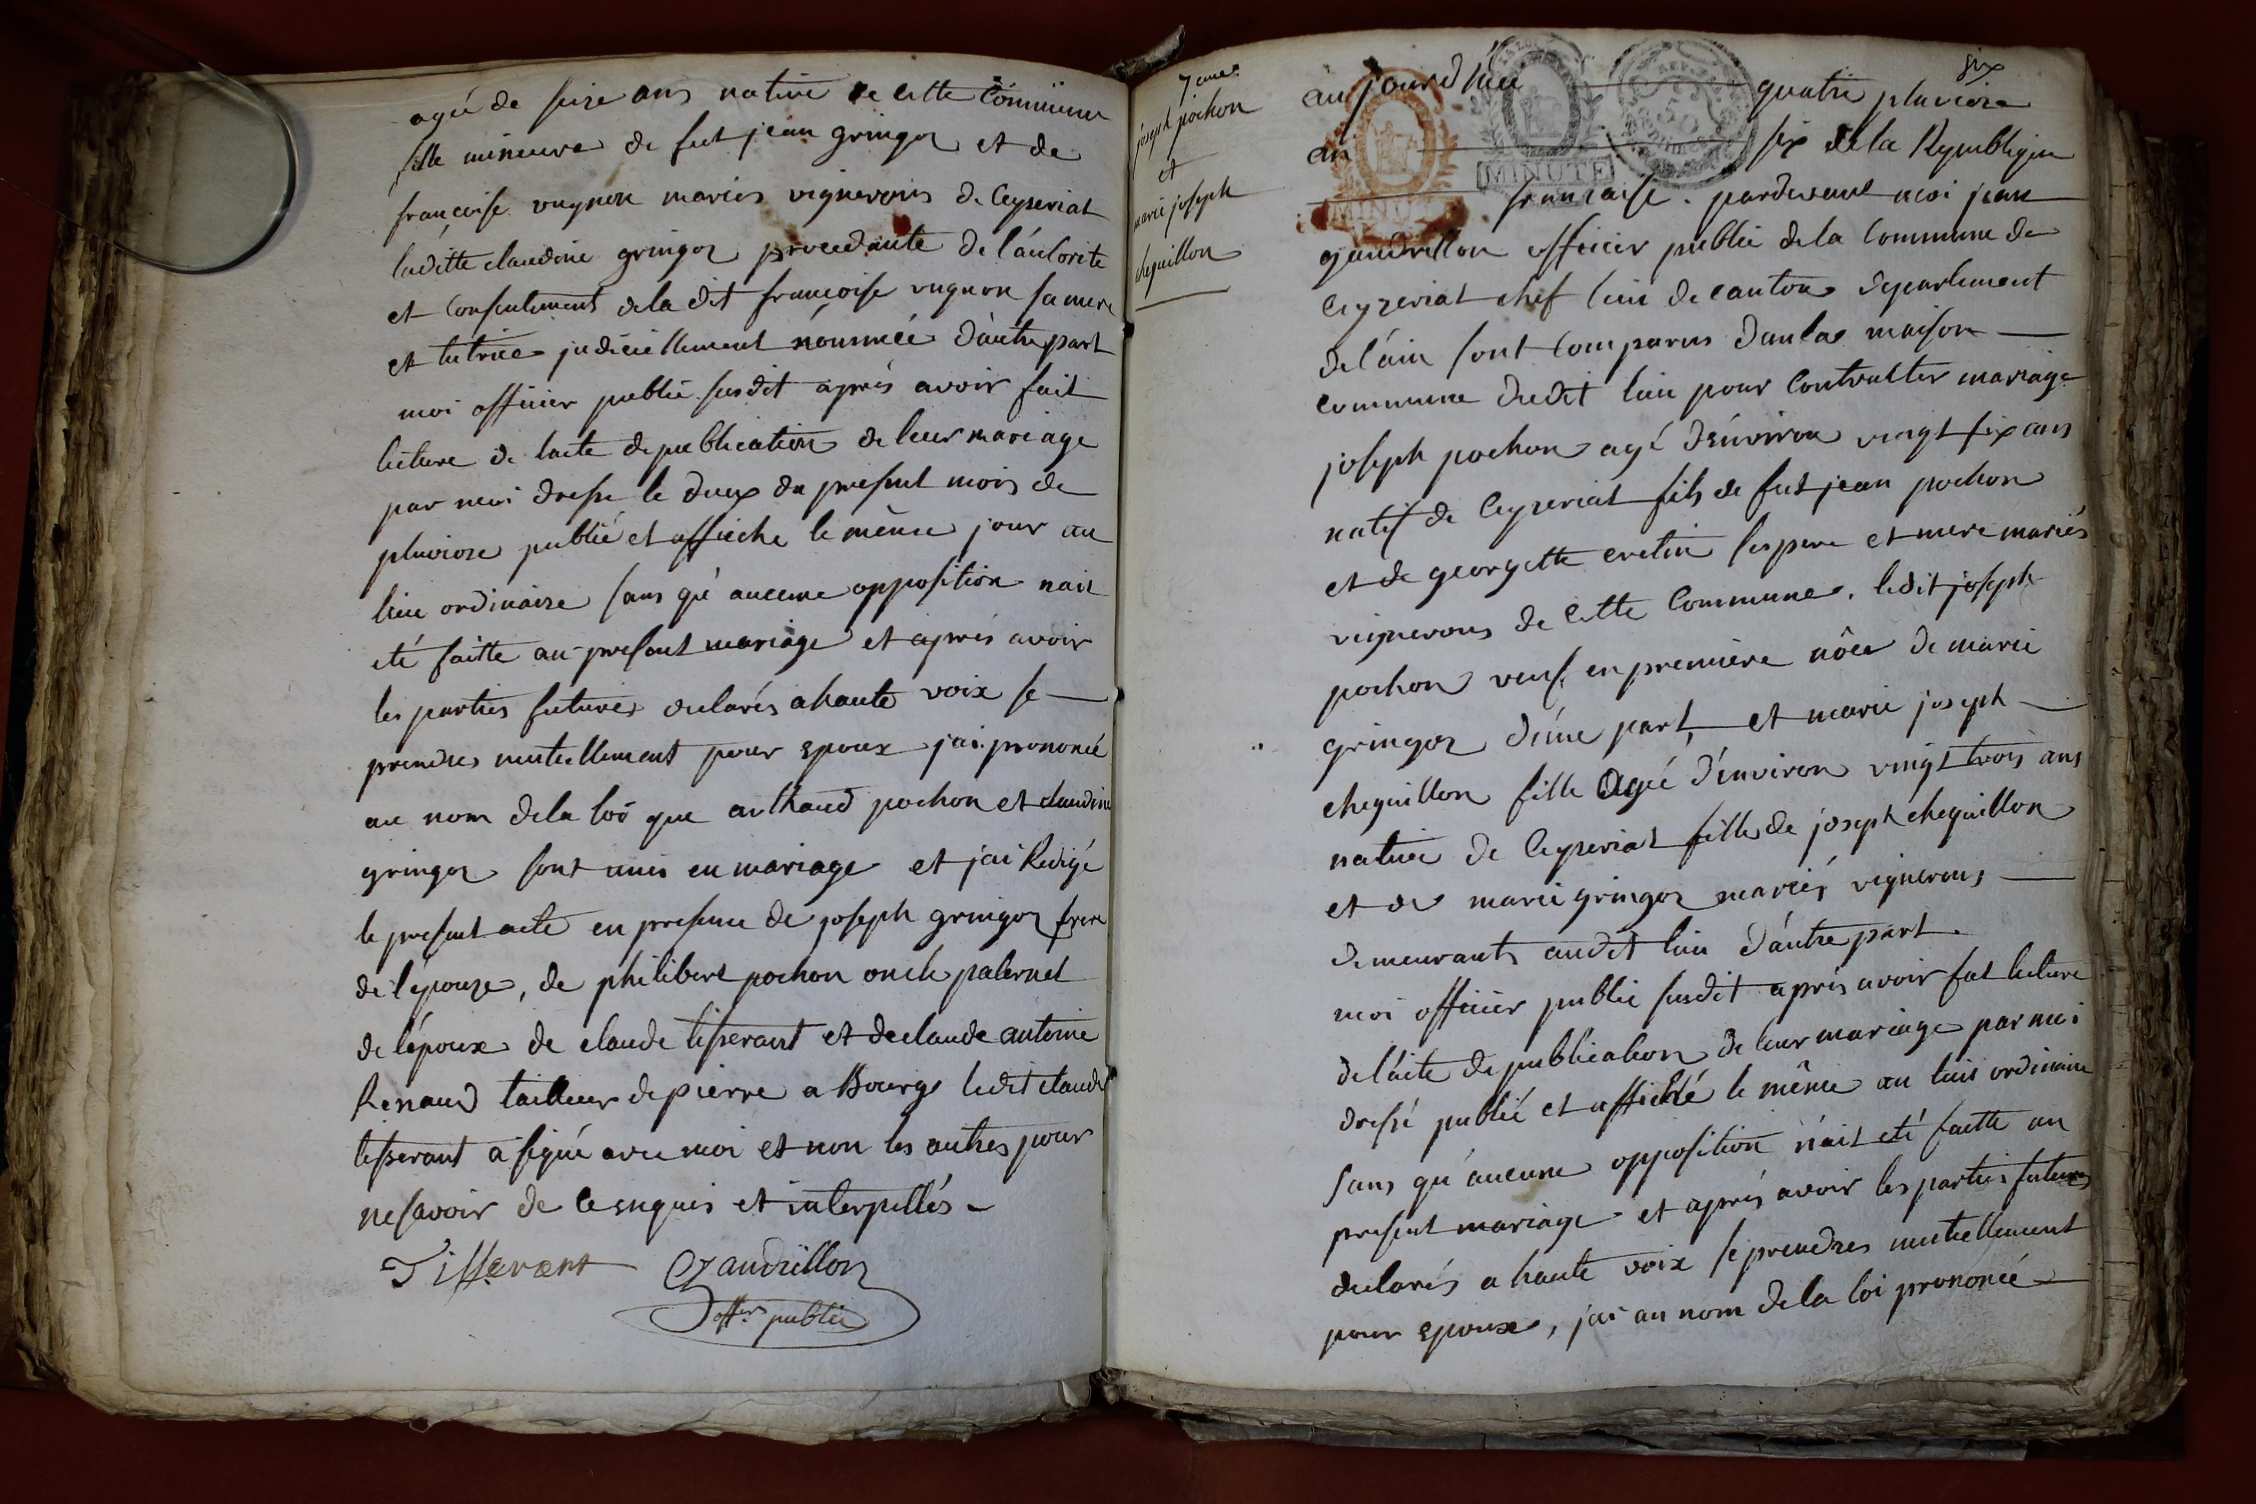 agée de seize ans native de cette Commune
fille mineure de fut jean gringoz et de
françoise vugnon mariés vignerons de Ceyseriat
laditte claudine gringoz procedante de l'autorite
et Consentement de la dit françoise vugnon sa mere
et tutrice judiciellement nommée d'autre part
moi officier public susdit après avoir fait
lecture de lacte de publication de leur mariage
par moi dressé le deux du present mois de
pluviose publié et affiché le même jour au
lieu ordinaire sans qu'aucune opposition nait
eté faitte au present mariage et après avoir
les parties futures declarés a haute voix se —
prendres mutuellement pour epoux j'ai prononcé
au nom de la loi que arthaud pochon et claudine
gringoz sont unis en mariage et j'ai Redigé
le present acte en presence de joseph gringoz frere
de l'épouse, de philibert pochon oncle paternel
de l'époux de claude tisserant et de claude antoine
Renaud tailleur de pierre a Bourg ledit claude
tisserant a signé avec moi et non les autres pour
ne savoir de ce enquis et interpellés -
Tisserant Gaudrillon
offr. public
7eme
joseph pochon
et
marie joseph
chequillon
six
aujourd'hui quatre pluviose
an six de la Republique
MINUTE
MINUTE
française. pardevant moi jean
gaudrillon officier public de la Commune de
Ceyzeriat chef lieu de canton département
de l'ain sont comparus dans la maison —
commune dudit lieu pour Contracter mariage
joseph pochon agé d'environ vingt six ans
natif de Ceyzeriat fils de fut jean pochon
et de georgette cretin ses pere et mere mariés
vignerons de cette Commune. ledit joseph
pochon veuf en première nôce de marie
gringoz d'une part, et marie joseph —
chequillon fille agée d'environ vingt trois ans
native de Ceyseriat fille de joseph chequillon
et de marie gringoz mariés vignerons —
demeurants audit lieu d'autre part.
moi officier public susdit après avoir fat lecture
de l'acte de publication de leur mariage par moi
dressé publié et affiché le même au lieu ordinaire
sans qu'aucune opposition n'ait eté faitte au
present mariage et après avoir les parties futures
declarés a haute voix se prendres mutuellement
pour epoux, j'ai au nom de la loi prononcé —